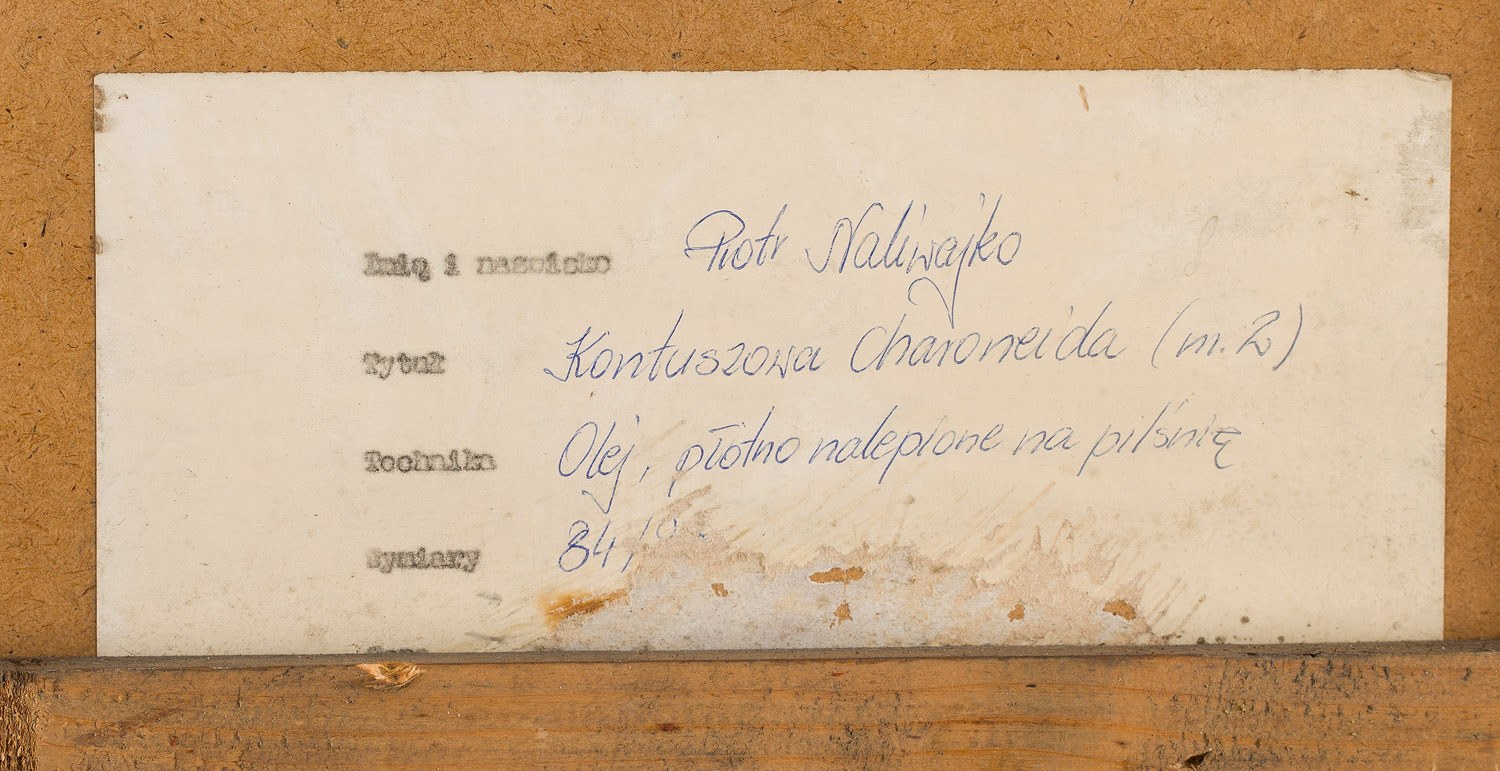 Imię i nazwisko Piotr Naliwajko
Tytuł Kontuszowa Charoneida (m. 2)
Technika Olej, płótno nalepione na pilśnię
Wymiary 84/